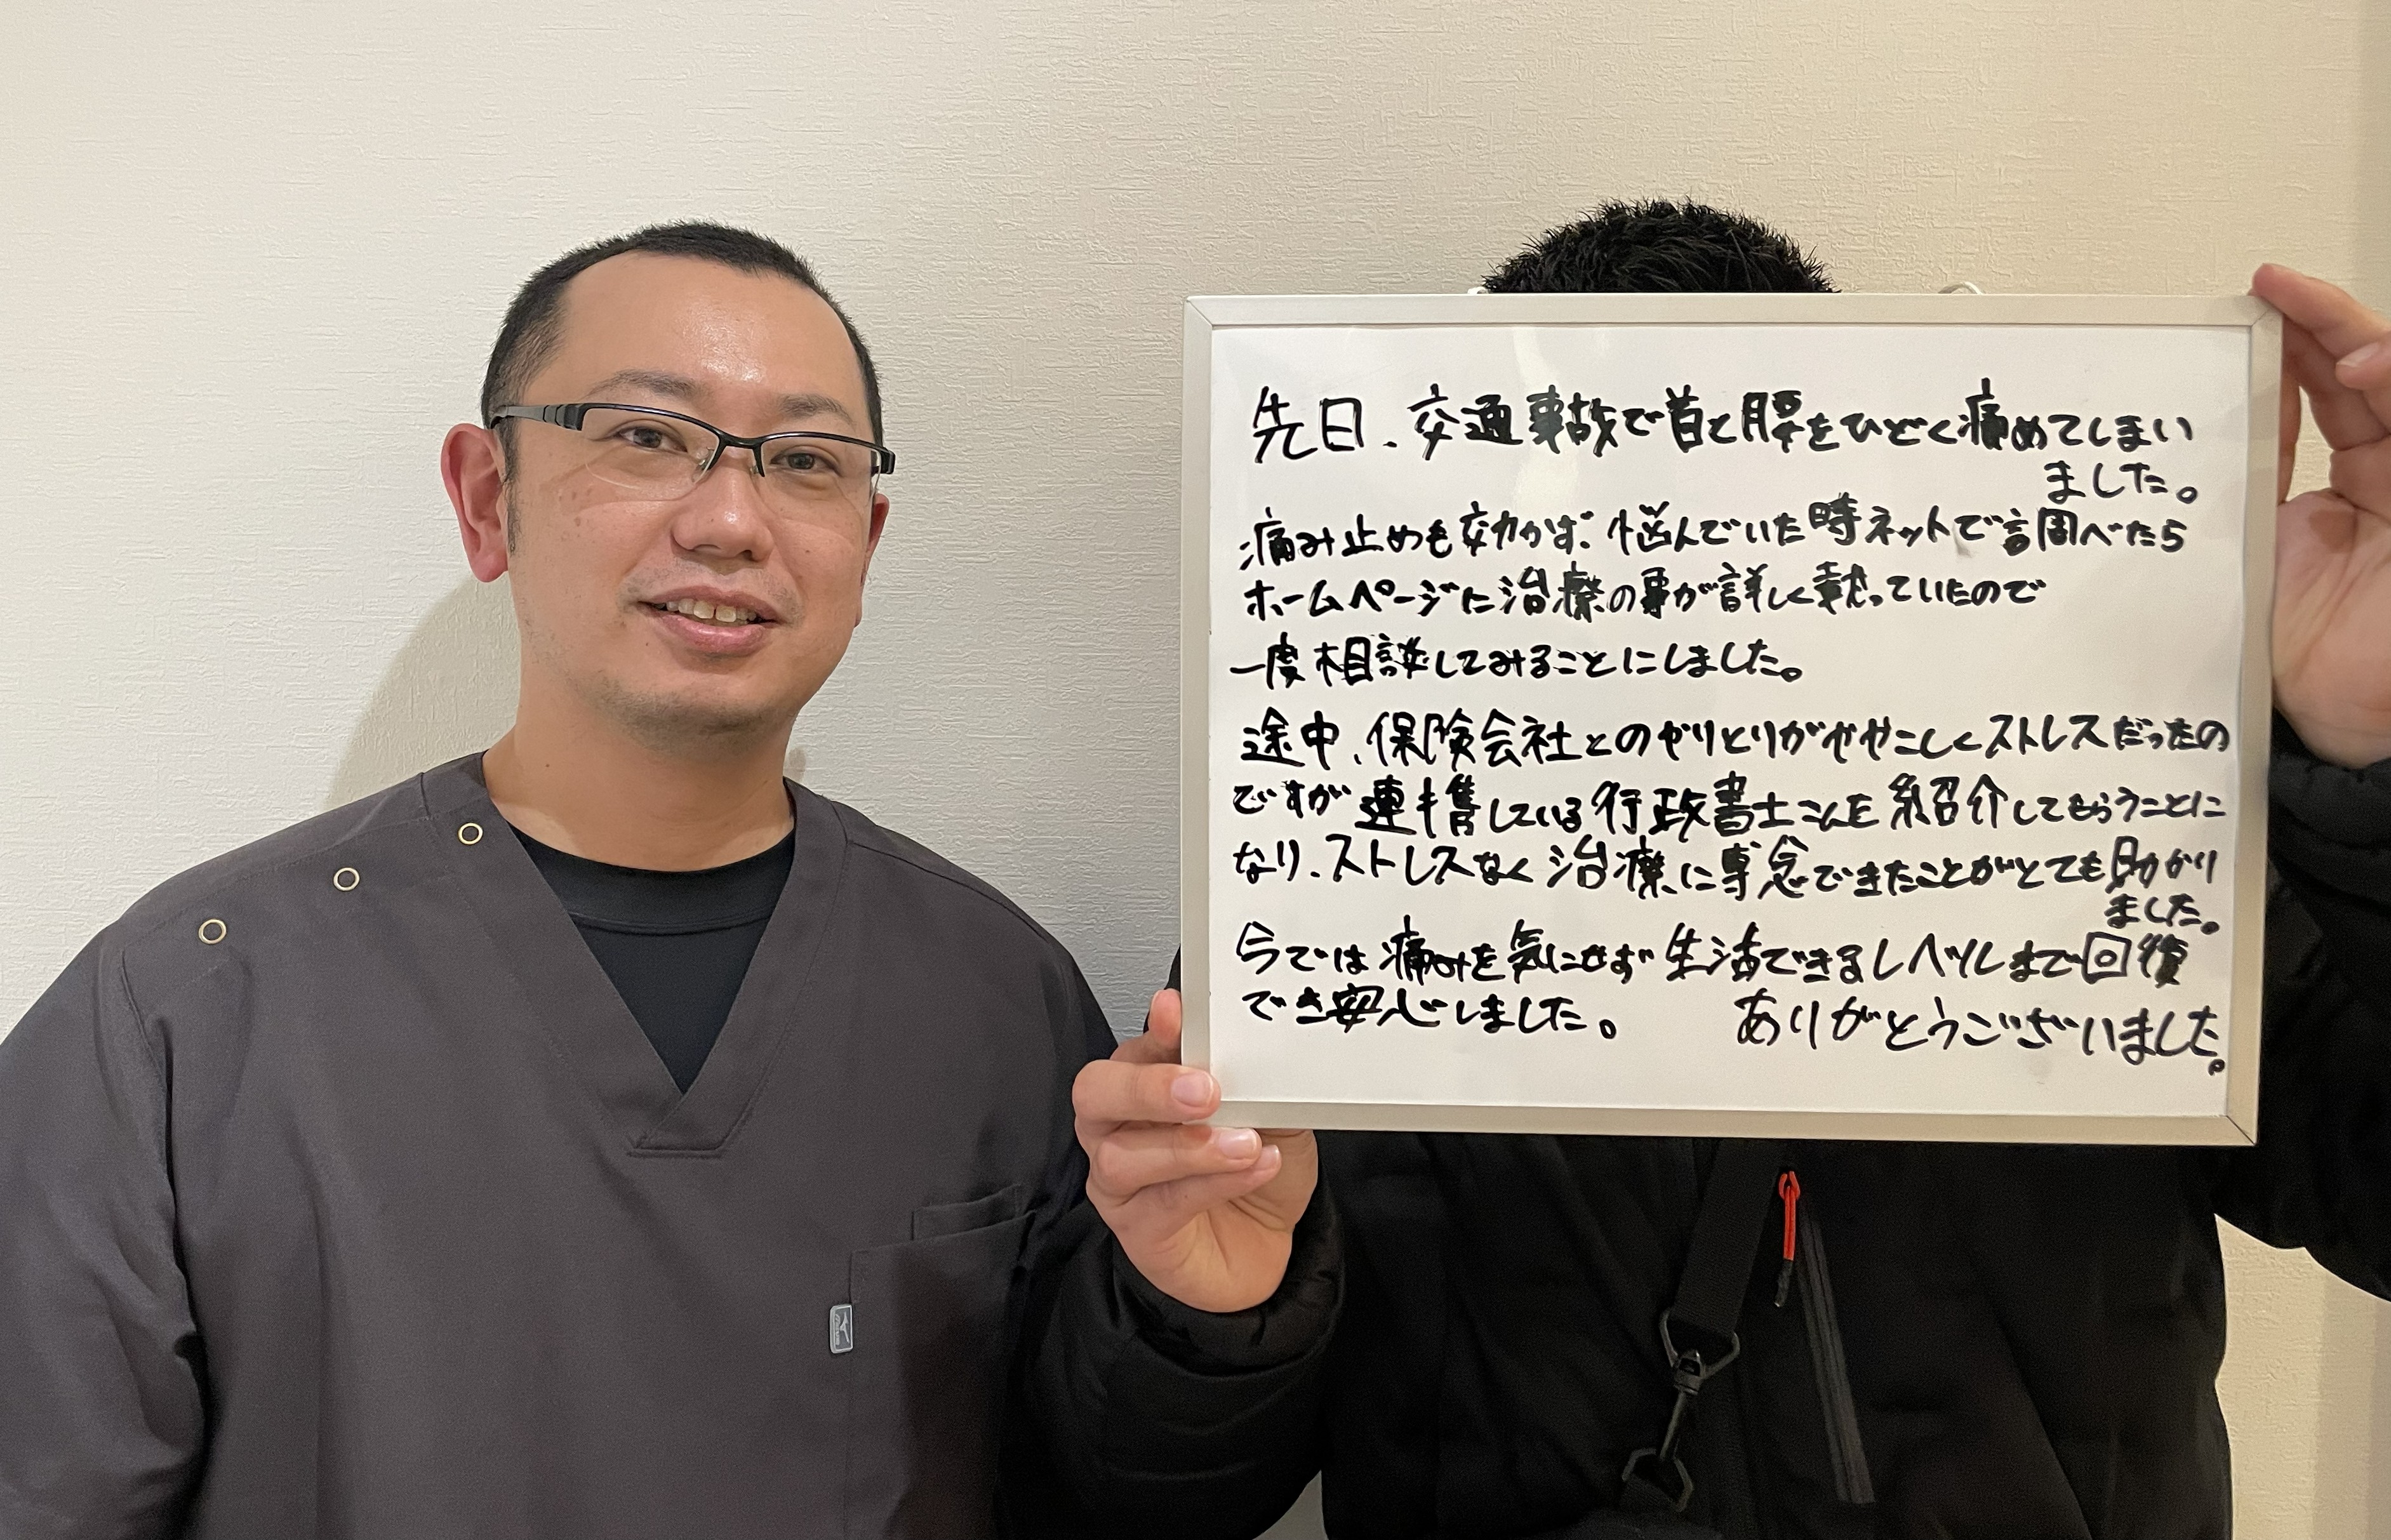 先日、交通事故で首と腰をひどく痛めてしまい
ました。
痛み止めも効かず、悩んでいた時ネットで調べたら
ホームページに治療の事が詳しく載っていたので
一度相談してみることにしました。
途中、保険会社とのやりとりがややこしくストレスだったの
ですが連携している行政書士さんを紹介してもらうことに
なり、ストレスなく治療に専念できたことがとても助かり
ました。
今では痛みを気にせず生活できるレベルまで回復
でき安心しました。
ありがとうございました。